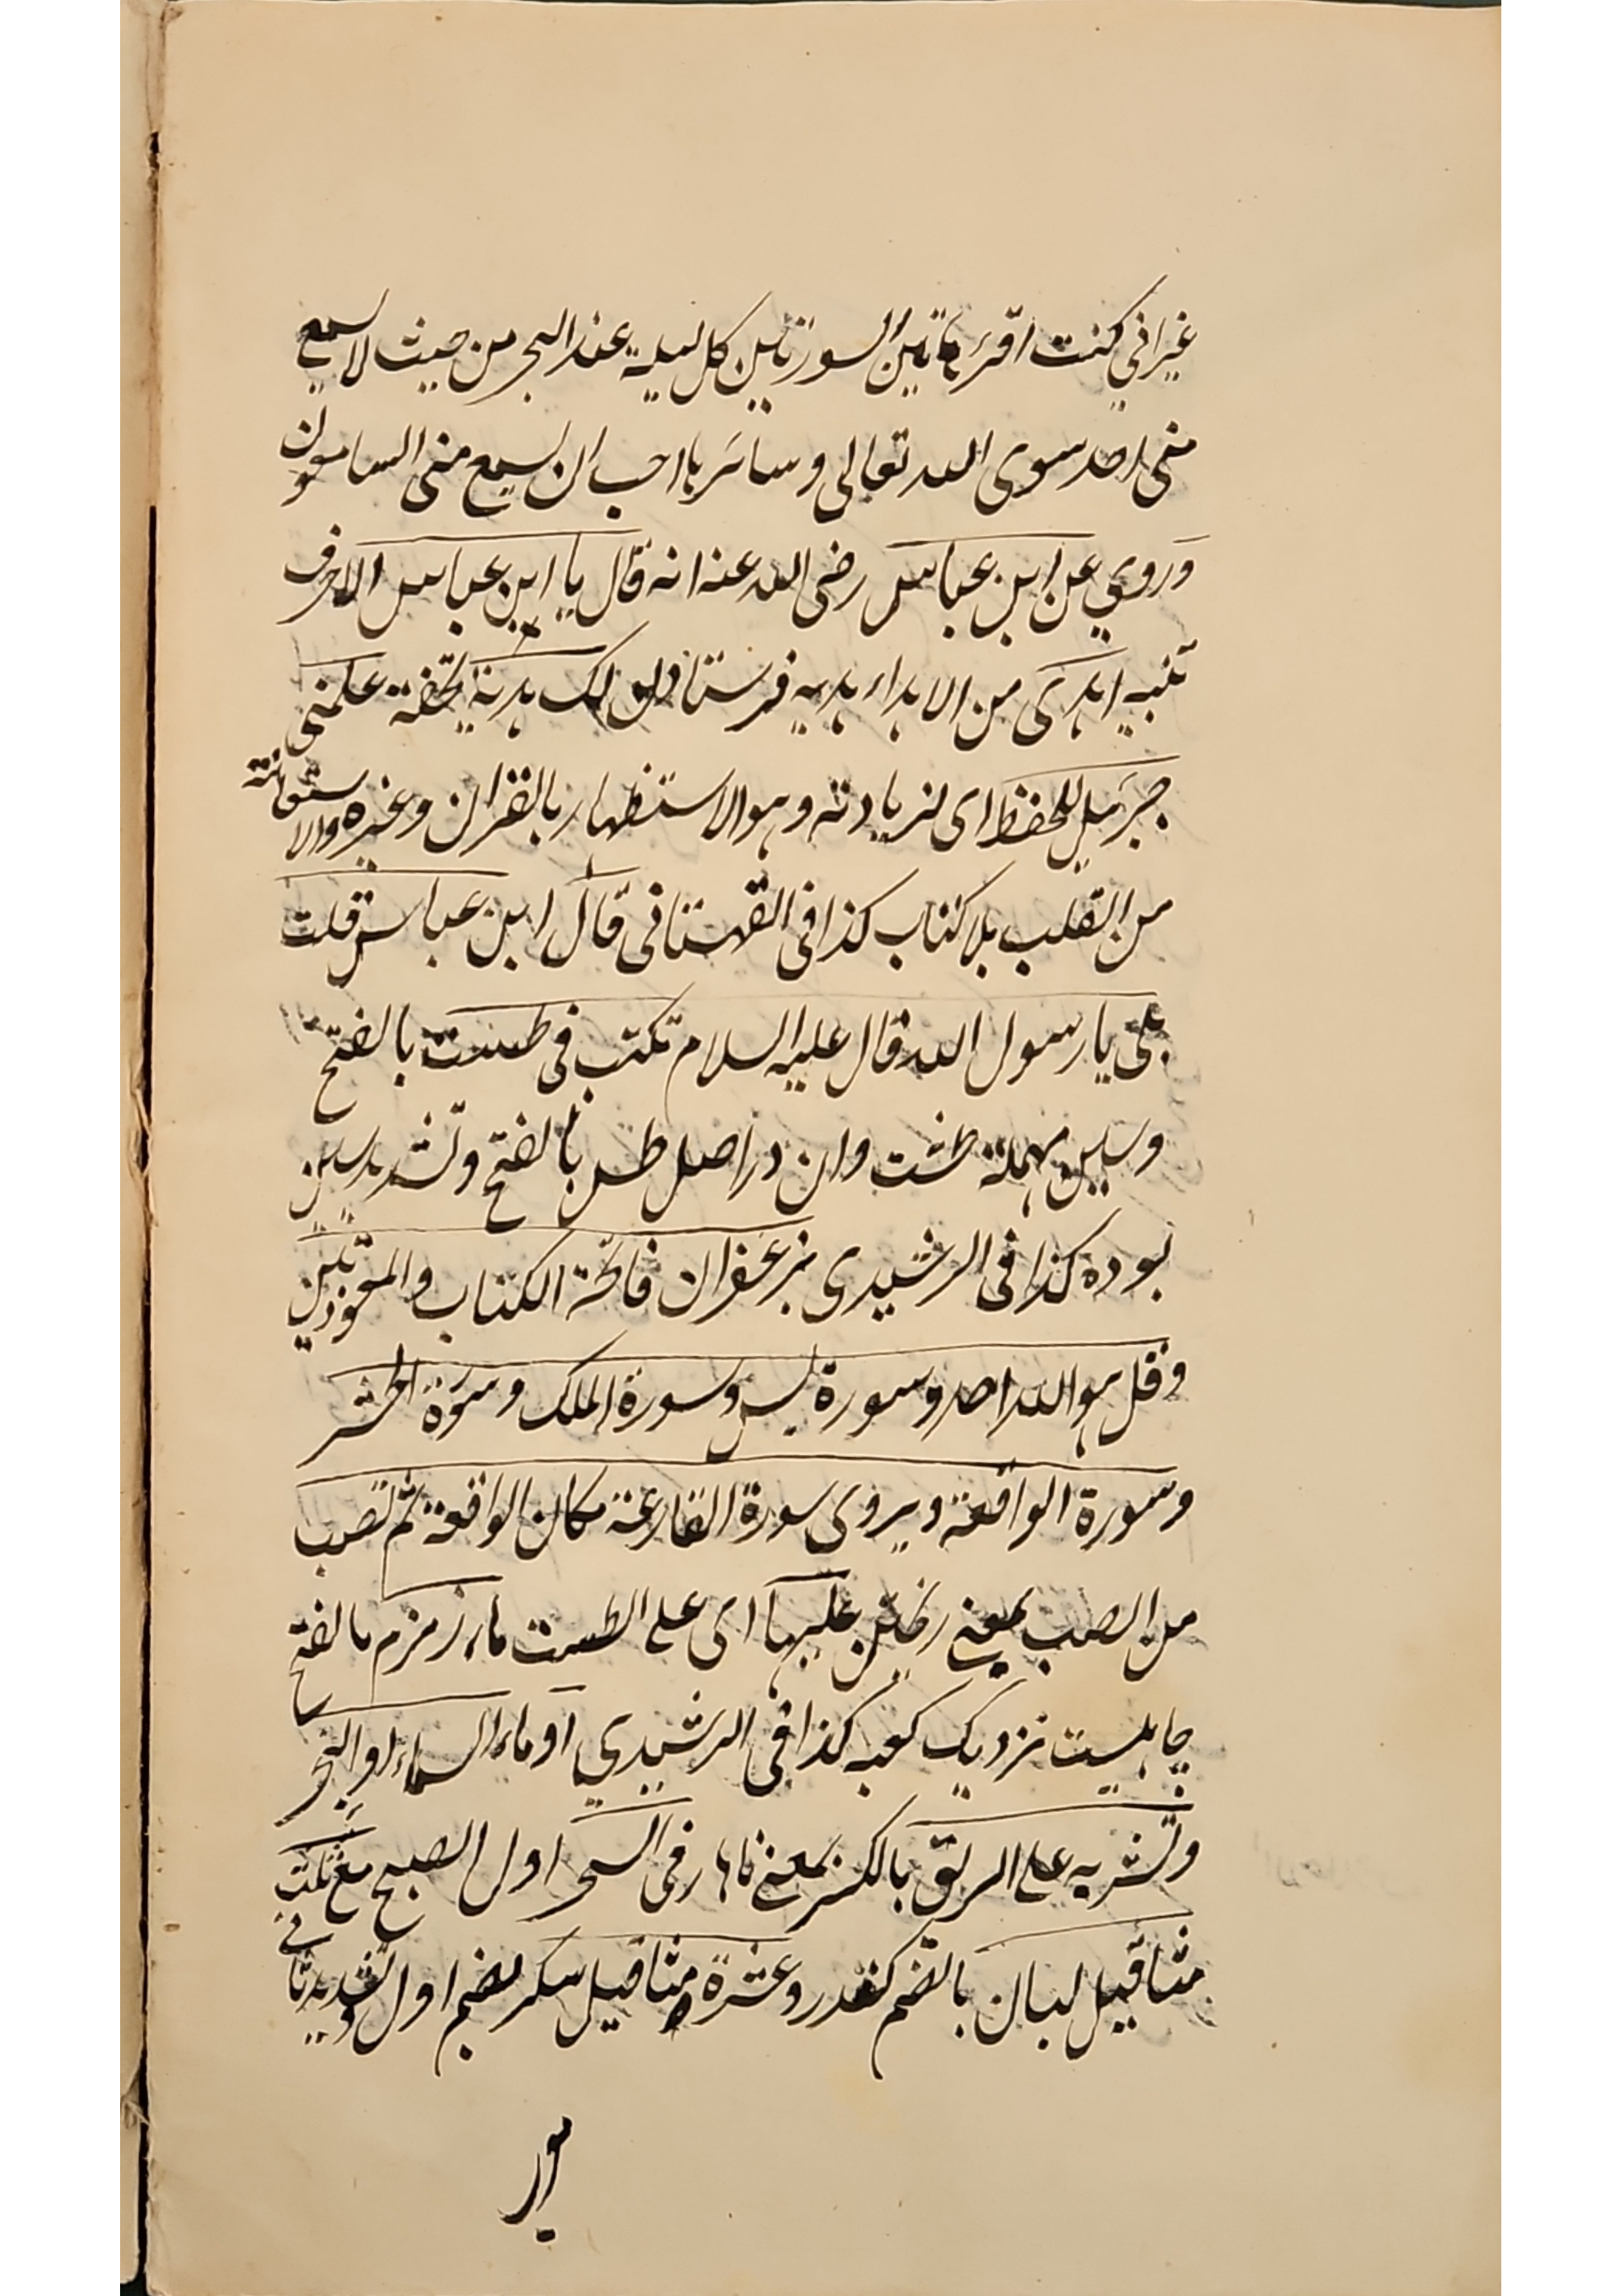 غيراني كنت اقرء هاتين السورتين كل ليلة عند السحر من حيث لا يسمع
منى احد سوى الله تعالى وسائرها احب ان يسمع منى السامعون
وروي عن ابن عباس رضى الله عنه انه قال يا ابن عباس الا حرف
تنبيه اهدى من الاهداء هديه فرستادن لك هدية تحفة علمنى
جبرئيل للحفظ اى لزيادته وهو الاستظهار بالقران وغيره والاستعانة
من القلب بلا كتاب كذا فى القهستانى قال ابن عباس قلت
بلى يا رسول الله قال عليه السلام تكتب فى طست بالفتح
وسين مهملة طشت وان در اصل طس بالفتح وتشديد سين
بوده كذا فى الرشيدى بزعفران فاتحة الكتاب والمعوذتين
وقل هو الله احد وسورة يس وسورة الملك وسورة الحشر
وسورة الواقعة ويروى سورة القارعة مكان الواقعة ثم تصب
من الصب بمعنى ريختن عليها اى على الطست ماء زمزم بالفتح
چاهيست نزديك كعبه كذا فى الرشيدي او ماء السماء او البحر
وتشربه على الريق بالكسر بمعنى ناهار فى السحر اول الصبح مع ثلث
مثاقيل لبان بالضم كندر وعشرة مثاقيل سكر بضم اول وتشديد ثانى